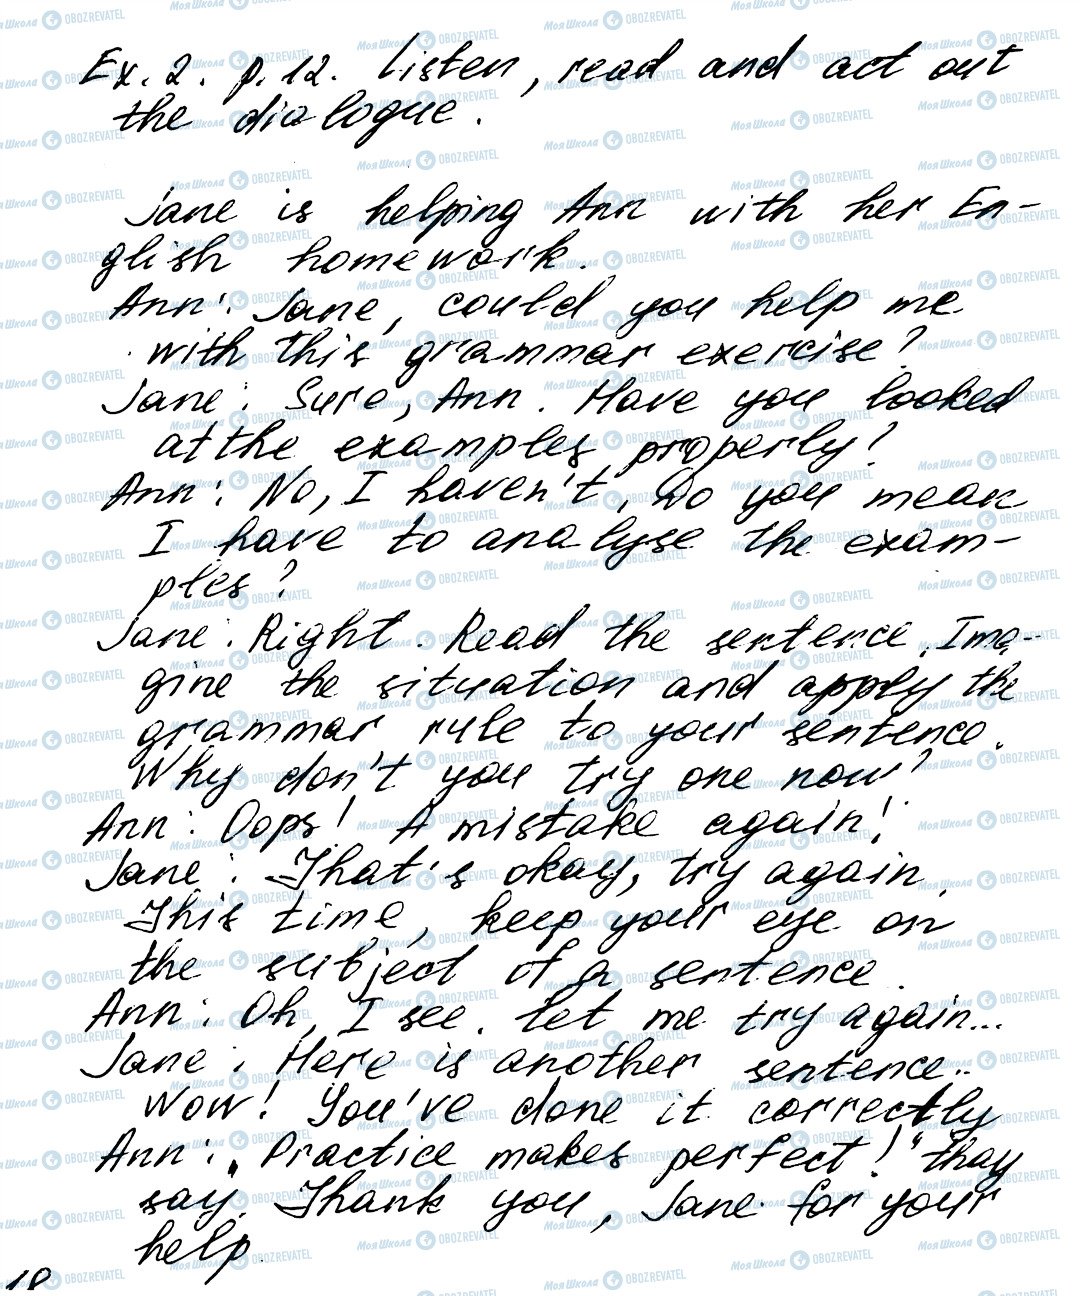 Ex. 2. p. 12. Listen, read and act out
the dialogue.
Jane is helping Ann with her En-
glish homework.
Ann: Jane, could you help me
with this grammar exercise?
Jane: Sure, Ann. Have you looked
at the examples properly?
Ann: No, I haven't. Do you mean
I have to analyse the exam-
ples?
Jane: Right. Read the sentence. Ima-
gine the situation and apply the
grammar rule to your sentence.
Why don't you try one now?
Ann: Oops! A mistake again!
Jane: That's okay, try again.
This time, keep your eye on
the subject of a sentence.
Ann: Oh, I see. Let me try again...
Jane: Here is another sentence...
Wow! You've done it correctly
Ann: „Practice makes perfect!“ they
say. Thank you, Jane for your
help.
18
МояШкола OBOZREVATEL